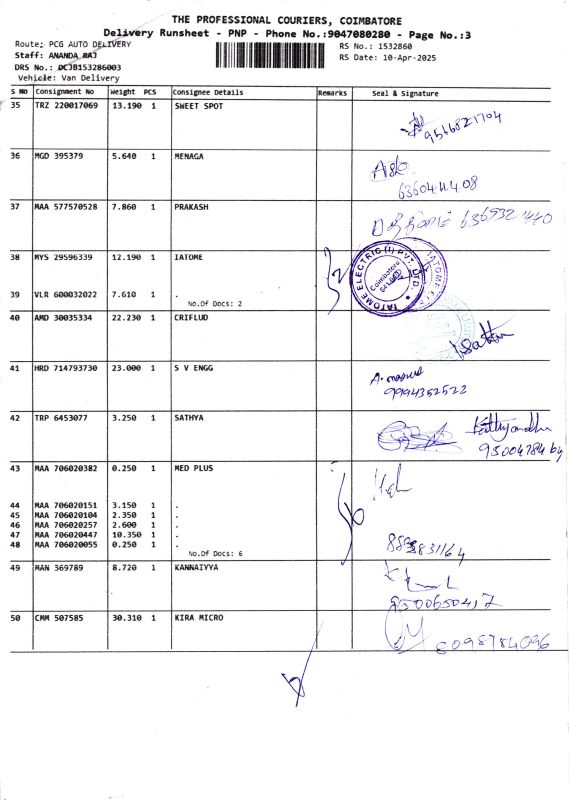 THE PROFESSIONAL COURIERS, COIMBATORE
Delivery Runsheet - PNP - Phone No.:9047080280 - Page No.:3
Route: PCG AUTO DELIVERY
RS No.: 1532860
Staff: ANANDA RAJ
RS Date: 10-Apr-2025
DRS No.: DCJB153286003
Vehicle: Van Delivery
S NO Consignment No Weight PCS Consignee Details Remarks Seal & Signature
35 TRZ 220017069 13.190 1 SWEET SPOT
9566821704
36 MGD 395379 5.640 1 MENAGA
37 MAA 577570528 7.860 1 PRAKASH
38 MYS 29596339 12.190 1 IATOME
IATOME ELECTRIC (I) PVT. LTD.
Coimbatore
39 VLR 600032022 7.610 1 .
No.Of Docs: 2
40 AMD 30035334 22.230 1 CRIFLUD
41 HRD 714793730 23.000 1 S V ENGG
9994352522
42 TRP 6453077 3.250 1 SATHYA
43 MAA 706020382 0.250 1 MED PLUS
44 MAA 706020151 3.150 1 .
45 MAA 706020104 2.350 1 .
46 MAA 706020257 2.600 1 .
47 MAA 706020447 10.350 1 .
48 MAA 706020055 0.250 1 .
No.Of Docs: 6
49 MAN 369789 8.720 1 KANNAIYYA
8500650417
50 CMM 507585 30.310 1 KIRA MICRO
8098784096